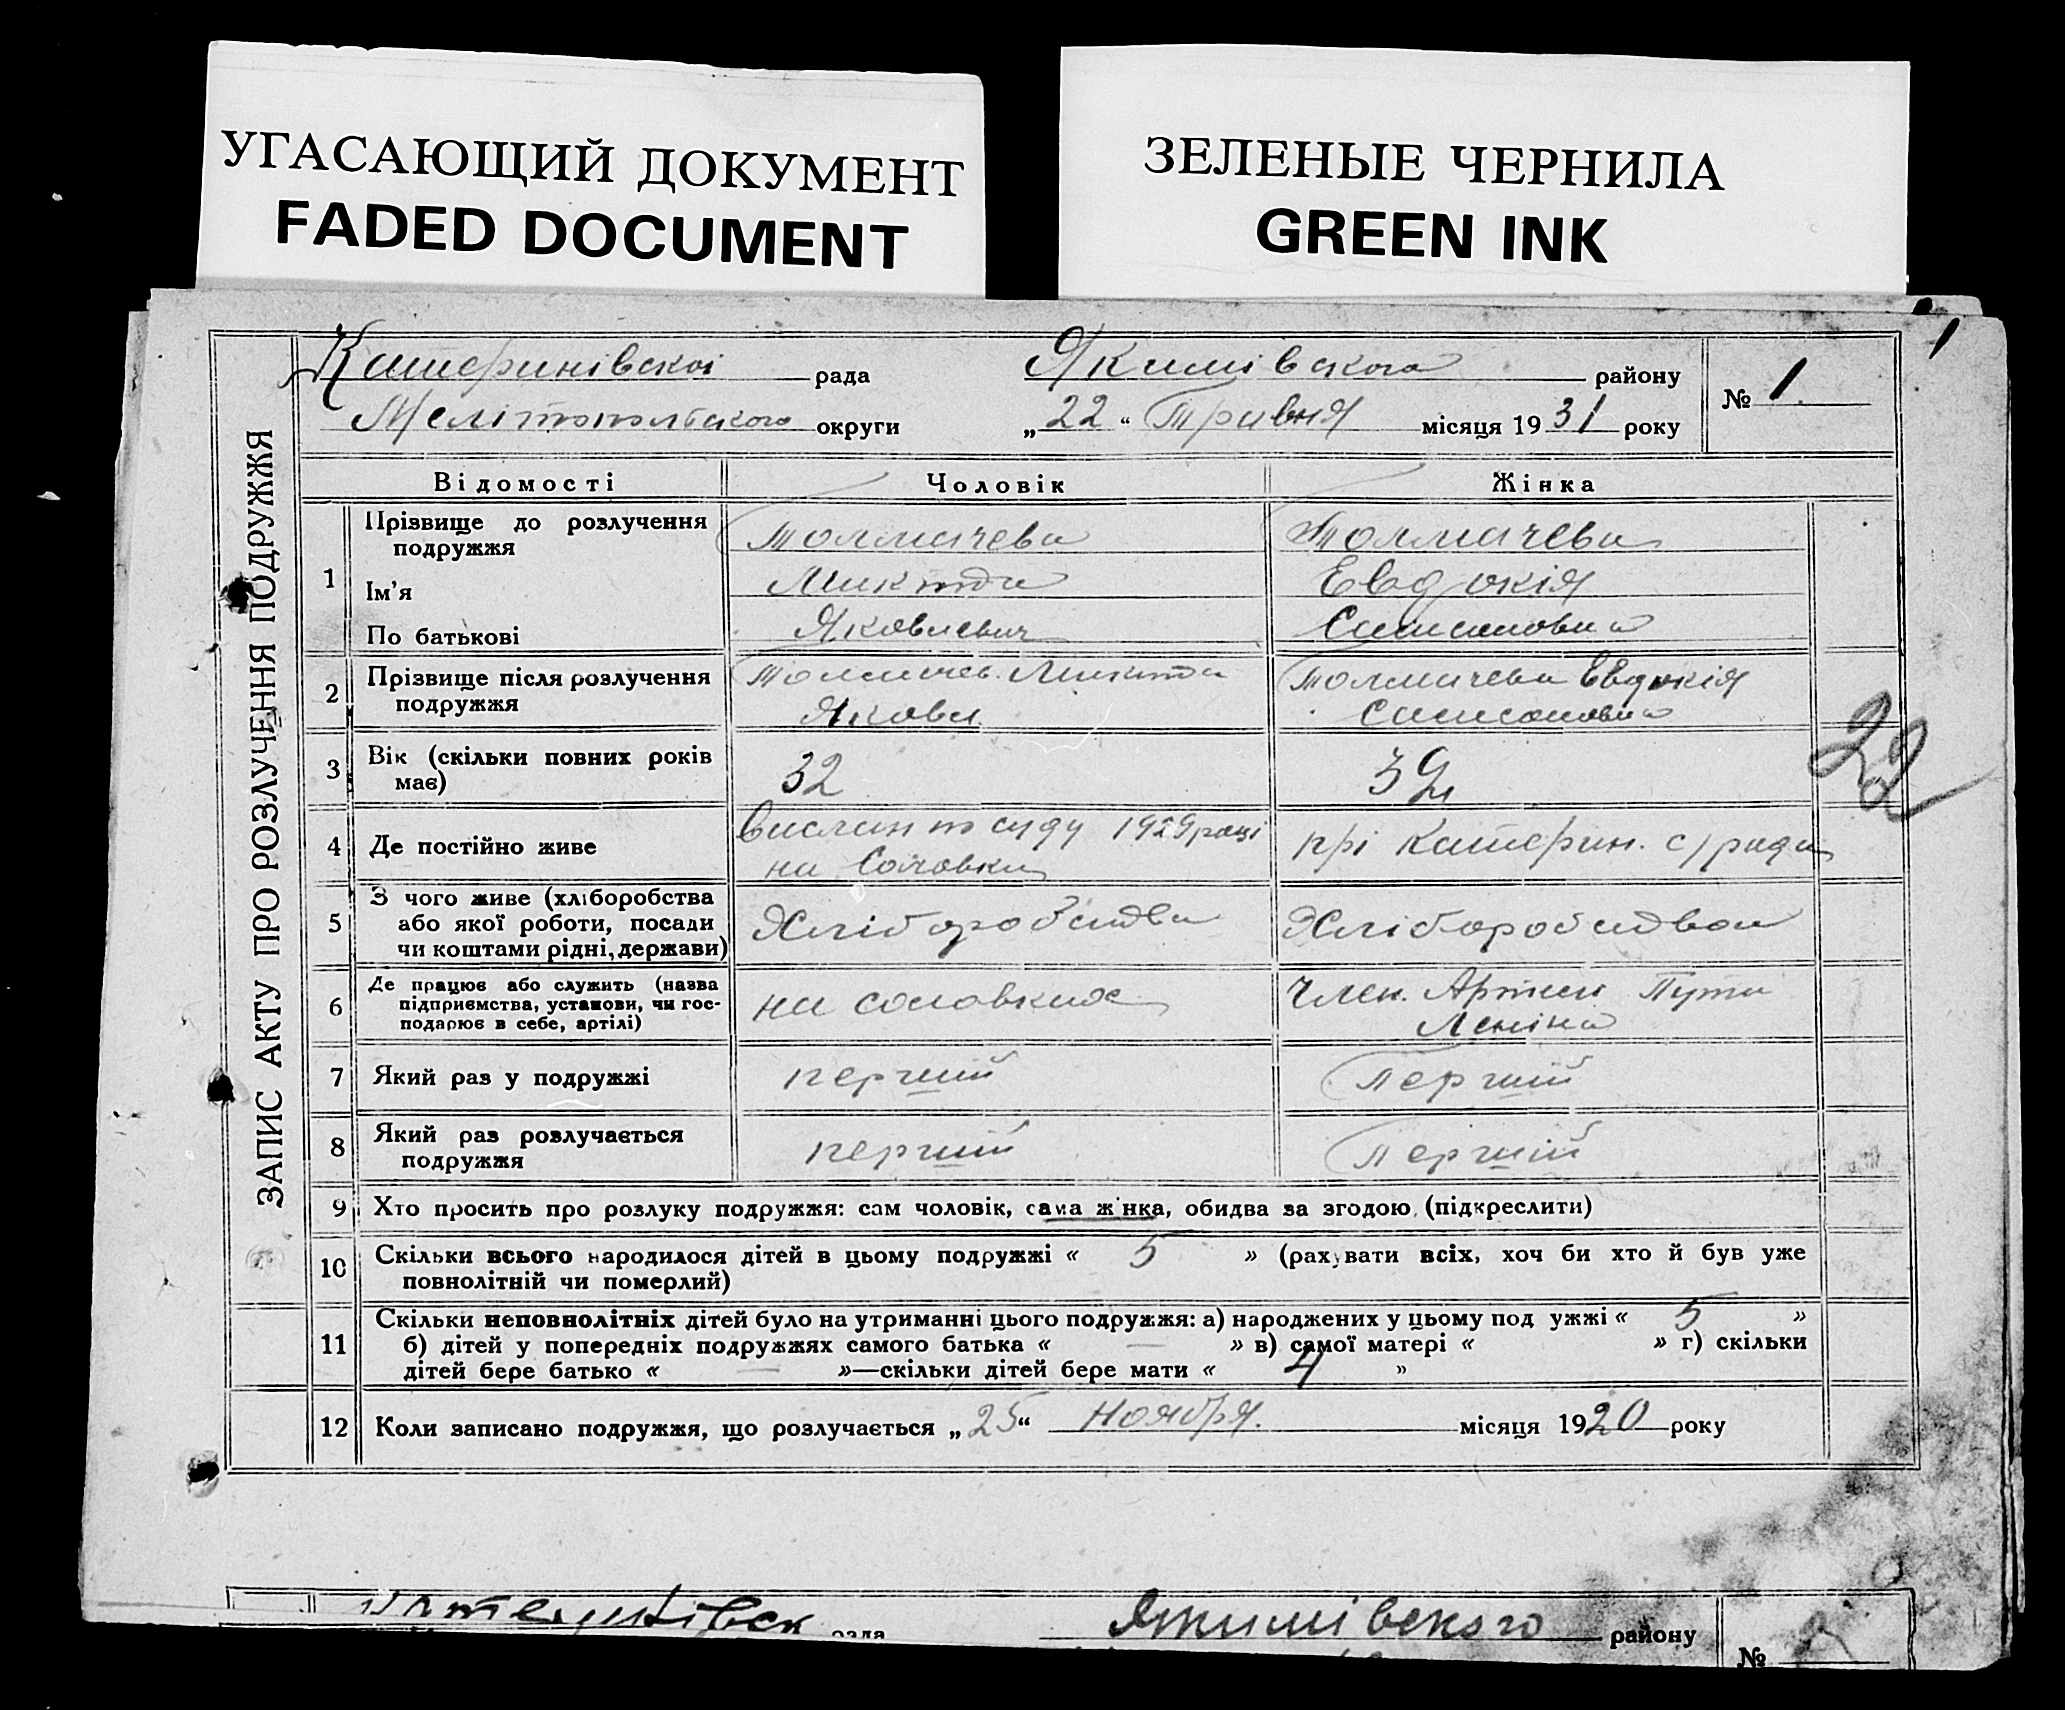 УГАСАЮЩИЙ ДОКУМЕНТ
FADED DOCUMENT
ЗЕЛЕНЫЕ ЧЕРНИЛА
GREEN INK
1
ЗАПИС АКТУ ПРО РОЗЛУЧЕННЯ ПОДРУЖЖЯ
Катеринівскоі рада Якимівского району
№ 1.
Мелітопольского округи „22“ Травня місяця 1931 року
Відомості Чоловік Жінка
1 Прізвище до розлучення подружжя Толмачева Толмачева
Ім'я Микита Евдокія
По батькові Яковлевич Самсоновна
2 Прізвище після розлучення Толмачев. Микита Толмачева Евдокія
подружжя Яковл Самсоновна
3 Вік (скільки повних років 32 39
має)
22
4 Де постійно живе Вислан по суду 1929 році прі Катерин. с/рада
на Соловки
5 З чого живе (хліборобства
або якої роботи, посади Хліборобства Хліборобством
чи коштами рідні, держави)
6 Де працює або служить (назва Член. Артили Пути
підприємства, установи, чи гос- на соловках Леніна
подарює в себе, артілі)
7 Який раз у подружжі перший Перший
8 Який раз розлучається перший Першій
подружжя
9 Хто просить про розлуку подружжя: сам чоловік, сама жінка, обидва за згодою, (підкреслити)
10 Скільки всього народилося дітей в цьому подружжі « 5 » (рахувати всіх, хоч би хто й був уже
повнолітній чи померлий)
11 Скільки неповнолітніх дітей було на утриманні цього подружжя: а) народжених у цьому под ужжі « 5 »
б) дітей у попередніх подружжях самого батька « — » в) самої матері « » г) скільки
дітей бере батько « — »—скільки дітей бере мати « 4 »
12 Коли записано подружжя, що розлучається „25“ Ноября. місяця 1920 року
Катеринівск рада Якимівского району
№